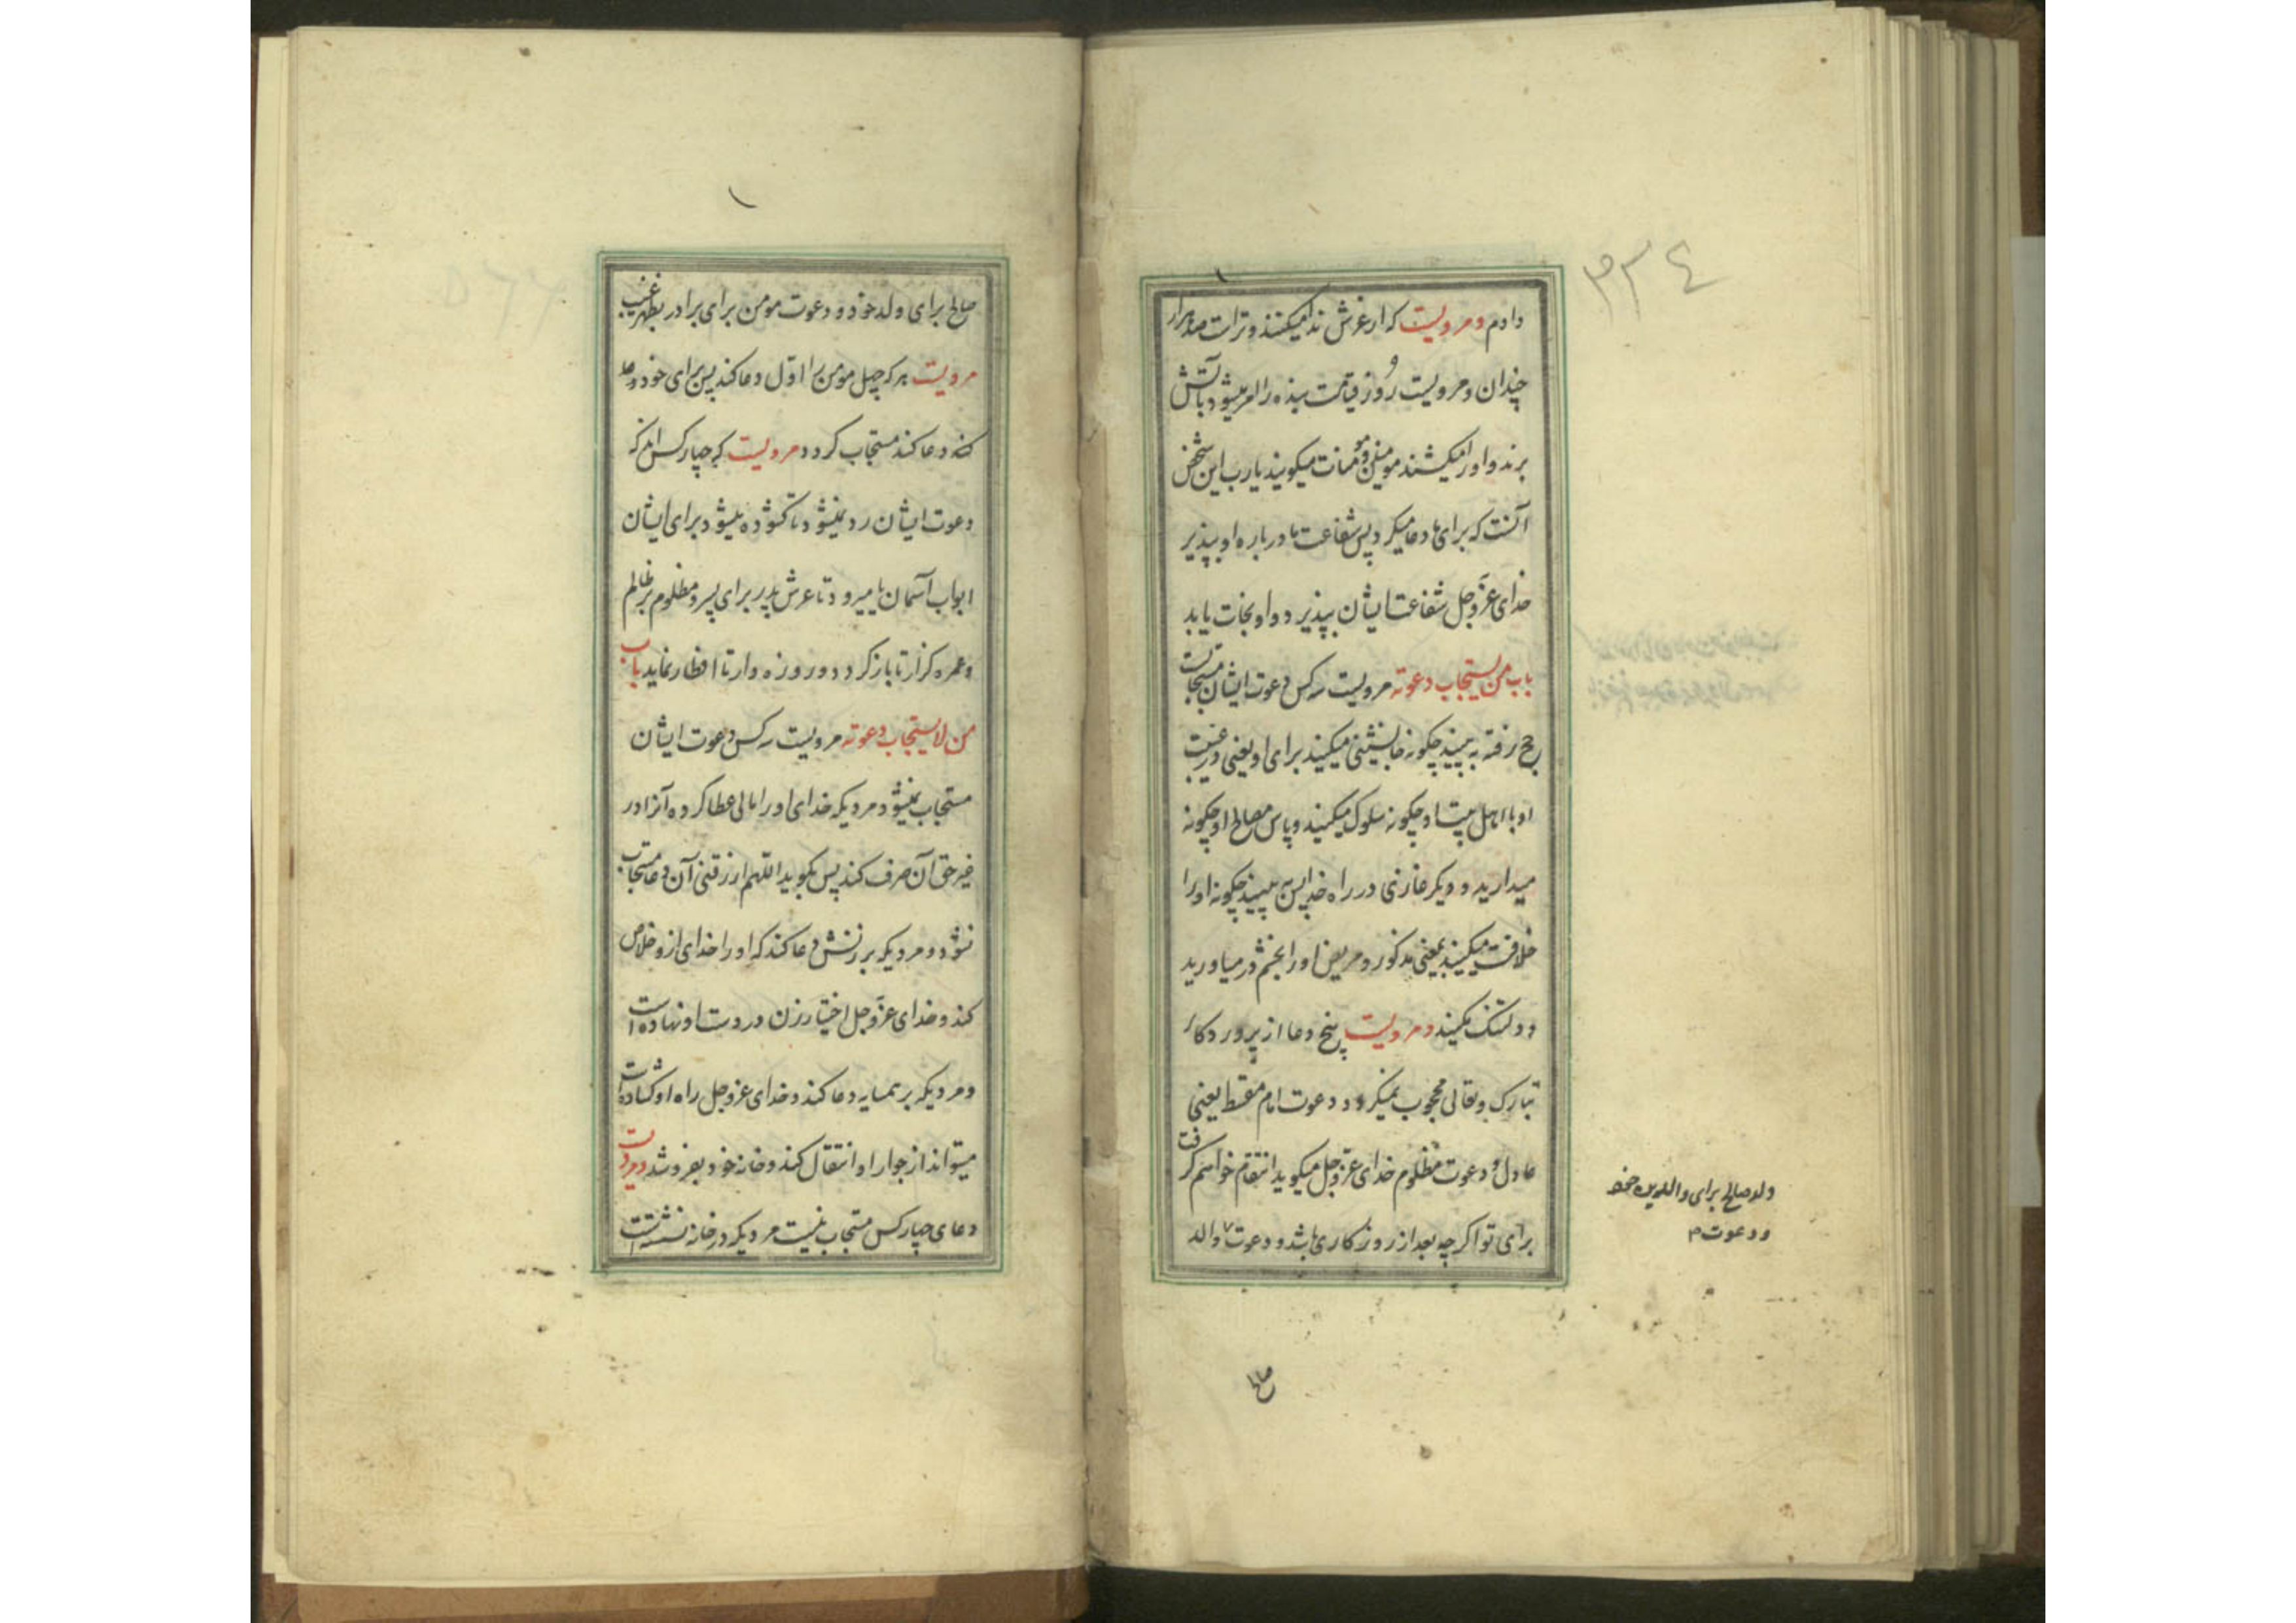 ۳۳٤
دادم و مرویست که از عرش ندا میکنند و تراست صد هزار
چندان و مرویست روز قیامت بنده را امر میشود بآتش
برند و او را میکشند مومنین و مومنات میکویند یارب این شخص
آنست که برای ما دعا میکرد پس شفاعت ما درباره او بپذیر
خدای عز و جل شفاعت ایشان بپذیرد و او نجات یابد
باب من یستجاب دعوته مرویست سه کس دعوت ایشان مستجابست
حج رفته به بینید چکونه جانشینی میکنید برای او یعنی در غیبت
او با اهل بیت او چکونه سلوک میکنید و پاس مصالح او چکونه
میدارید و دیکر غازی در راه خدا پس به بینید چکونه او را
خلافت میکنید بمعنی مذکور و مریض او را بخشم در میاورید
و دلتنک مکنید و مرویست پنج دعا از پروردکار
تبارک و تعالی محجوب نمیکردد دعوت امام مقسط یعنی
عادل و دعوت مظلوم خدای عز و جل میکوید انتقام خواهم کرفت
برای تو اکر چه بعد از روزکاری باشد و دعوت والد
ولد صالح برای والدین خود
و دعوت م
صالح
صالح برای ولد خود و دعوت مومن برای برادر بظهر غیب
مرویست هر که چهل مومن را اول دعا کند پس برای خود دعا
کند دعا کند مستجاب کردد و مرویست که چهار کس اند که
دعوت ایشان رد نمیشود تا کشوده میشود برای ایشان
ابواب آسمان یا میرود تا عرش پدر برای پسر و مظلوم بر ظالم
و عمره کزار تا باز کردد و روزه دار تا افطار نماید باب
من لا یستجاب دعوته مرویست سه کس دعوت ایشان
مستجاب نمیشود مردیکه خدای او را مالی عطا کرده آنرا در
غیر حق آن صرف کند پس بکوید اللهم ارزقنی آن دعا مستجاب
نشود و مردیکه بر زنش دعا کند که او را خدای ازو خلاص
کند و خدای عز و جل اختیار زن در دست او نهاده است
و مردیکه بر همسایه دعا کند و خدای عز و جل راه او کشاده است
میتواند از جوار او انتقال کند و خانه خود بفروشد و مرویست
دعای چهار کس مستجاب نیست مردیکه در خانه نشسته است